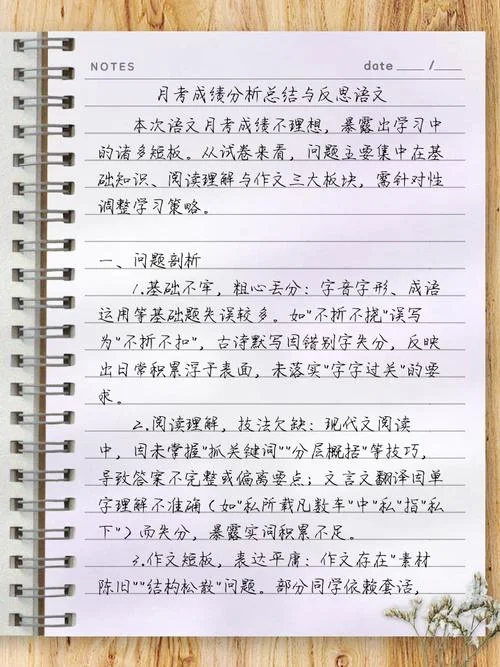 NOTES date ____/__
月考成绩分析总结与反思语文
本次语文月考成绩不理想，暴露出学习中
的诸多短板。从试卷来看，问题主要集中在基
础知识、阅读理解与作文三大板块，需针对性
调整学习策略。
一、问题剖析
1.基础不牢，粗心丢分：字音字形、成语
运用等基础题失误较多。如"不折不挠"误写
为"不折不扣"，古诗默写因错别字失分，反映
出日常积累浮于表面，未落实"字字过关"的要
求。
2.阅读理解，技法欠缺：现代文阅读
中，因未掌握"抓关键词""分层概括"等技巧，
导致答案不完整或偏离要点；文言文翻译因单
字理解不准确（如"私所载凡数车"中"私"指"私
下"）而失分，暴露实词积累不足。
3.作文短板，表达平庸：作文存在"素材
陈旧""结构松散"问题。部分同学依赖套话，